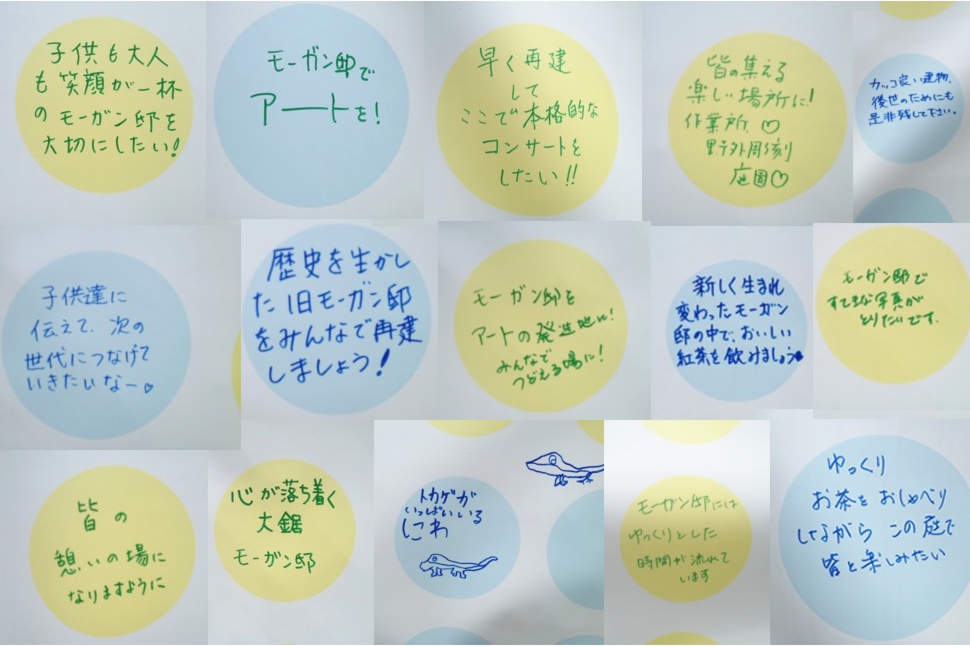 子供も大人
も笑顔が一杯
のモーガン邸を
大切にしたい!
モーガン邸で
アートを!
早く再建
して
ここで本格的な
コンサートを
したい!!
皆の集える
楽しい場所に!
作業所♡
野外彫刻
庭園♡
カッコ良い建物、
後世のためにも
是非残して下さい。
子供達に
伝えて、次の
世代につなげて
いきたいなー♡
歴史を生かし
た旧モーガン邸
をみんなで再建
しましょう!
モーガン邸を
アートの発造地に!
みんなで
つどえる場に!
新しく生まれ
変わったモーガン
邸の中で、おいしい
紅茶を飲めましょう
モーガン邸で
すてきな写真が
とりたいです。
皆の
憩いの場に
なりますように
心が落ち着く
大鋸
モーガン邸
トカゲが
いっぱいいる
にわ
モーガン邸には
ゆっくりとした
時間が流れて
います
ゆっくり
お茶をおしゃべり
しながらこの庭で
皆と楽しみたい